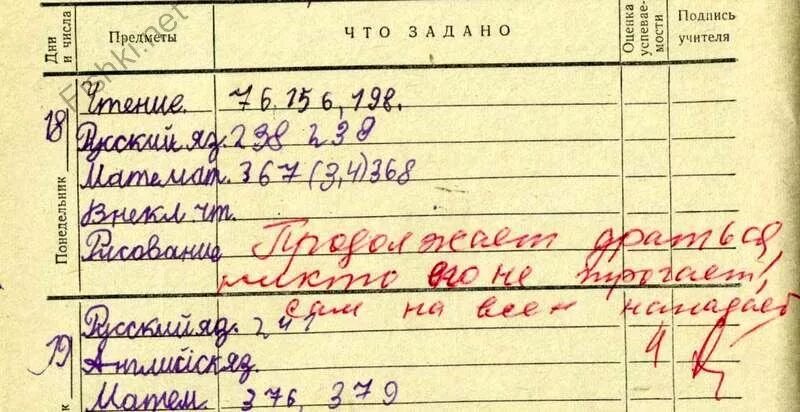 Дни и числа
Предметы
ЧТО ЗАДАНО
Оценка успевае- мости
Подпись учителя
Fishki.net
Понедельник
18
Чтение. 76, 156, 198.
Русский яз. 238 239
Математ. 367 (3,4) 368
Внекл. чт.
Рисование
Продолжает драться,
никто его не трогает,
сам на всех нападает
19
Русский яз. 241
Английск яз. 4
Матем. 376, 379
к